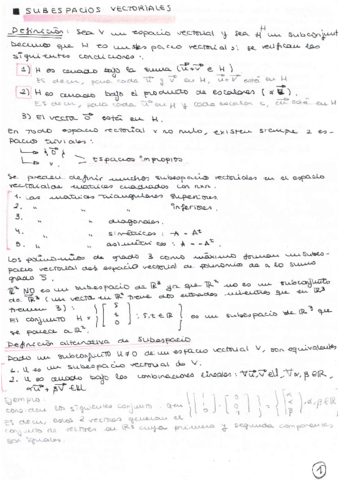 SUBESPACIOS VECTORIALES
Definición: Sea V un espacio vectorial y sea H un subconjunto
decimos que H es un subespacio vectorial si se verifican las
siguientes condiciones:
1) H es cerrado bajo la suma (u+v ∈ H)
Es decir, para cada u y v en H, u+v está en H
2) H es cerrado bajo el producto de escalares (αu).
Es decir, para cada u en H y cada escalar c, cu está en H
3) El vector 0 está en H.
En todo espacio vectorial V no nulo, existen siempre 2 es-
pacios triviales:
{0}
V
Espacios impropios.
Se pueden definir muchos subespacios vectoriales en el espacio
vectorial de matrices cuadradas con nxn.
1. Las matrices triangulares superiores.
2. " " " inferiores.
3. " " diagonales.
4. " " simétricas: A = Aᵗ
5. " "
Los polinomios de grado 3 como máximo forman un subes-
pacio vectorial del espacio vectorial de polinomios de a lo sumo
grado 5.
R² NO es un subespacio de R³ ya que R² no es un subconjunto
de R³ (un vector en R² tiene dos entradas mientras que en R³
tienen 3):
El conjunto H = es un subespacio de R³ que
se parece a R².
Definición alternativa de Subespacio
Dado un subconjunto U≠0 de un espacio vectorial V, son equivalentes
1. U es un subespacio vectorial de V.
2. U es cerrado bajo las combinaciones lineales: ∀u,v∈U, ∀α,β∈R,
αu+βv∈U
Ejemplo
Es decir, estos 2 vectores generan el
conjunto de vectores en R³ cuya primera y segunda componentes
son iguales.
1